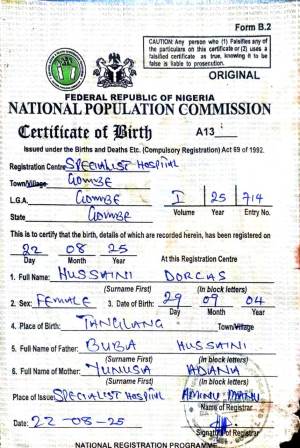 Form B.2
CAUTION: Any person who (1) Falsifies any of the particulars on this certificate or (2) uses a falsified certificate as true, knowing it to be false is liable to prosecution.
ORIGINAL
FEDERAL REPUBLIC OF NIGERIA
NATIONAL POPULATION COMMISSION
Certificate of Birth A13
Issued under the Births and Deaths Etc. (Compulsory Registration) Act 69 of 1992.
Registration Centre SPECIALIST HOSPITAL
Town/Village GOMBE
L.G.A. GOMBE I 25 714
State GOMBE Volume Year Entry No.
This is to certify that the birth, details of which are recorded herein, has been registered on
22 08 25
Day Month Year At this Registration Centre
1. Full Name: HUSSAINI DORCAS
(Surname First) (In block letters)
2. Sex: FEMALE 3. Date of Birth: 29 09 04
Day Month Year
4. Place of Birth: TANGLANG Town/Village
5. Full Name of Father: BUBA HUSSAINI
(Surname First) (In block letters)
6. Full Name of Mother: YUNUSA ADANA
(Surname First) (In block letters)
Place of Issue: SPECIALIST HOSPITAL AMINU MANU
Name of Registrar
Date: 22-08-25
Signature of Registrar
NATIONAL REGISTRATION PROGRAMME